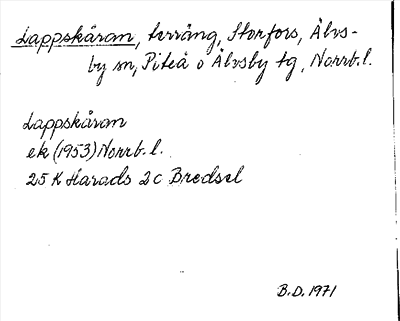 Lappskåran, terräng, Storfors, Älvs-
by sn, Piteå o Älvsby tg, Norrb.l.
Lappskåran
ek (1953) Norrb. l.
25 K Harads 2c Bredsel
B.D. 1971